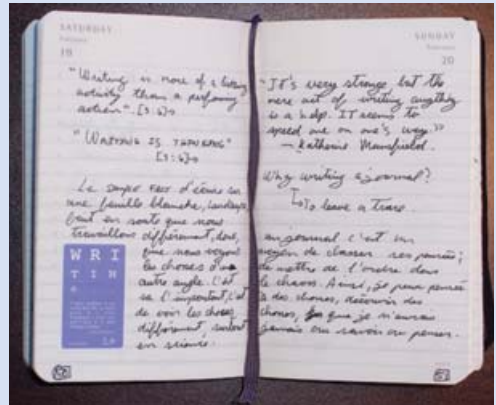 SATURDAY
February
19
"Writing is more of a living
activity than a performing
action". [3:6]
"WRITING IS THINKING"
[3:6]
Le simple fait d'écrire sur
une feuille blanche,
fait en sorte que nous
travaillons différemment, donc,
que nous voyons
les choses d'un
autre angle. C'est
ça l'important, c'est
de voir les choses
différemment, surtout
en science.
WRI
TIN
G
SUNDAY
February
20
"IT's very strange but the
mere act of writing anything
is a help. IT seems to
speed one on one's way."
- Katherine Mansfield.
Why writing a journal?
To leave a trace.
un journal c'est un
moyen de classer ses pensées;
de mettre de l'ordre dans
le chaos. Ainsi, je peux penser
à des choses, découvrir des
choses, que je n'aurais
jamais cru savoir ou penser.